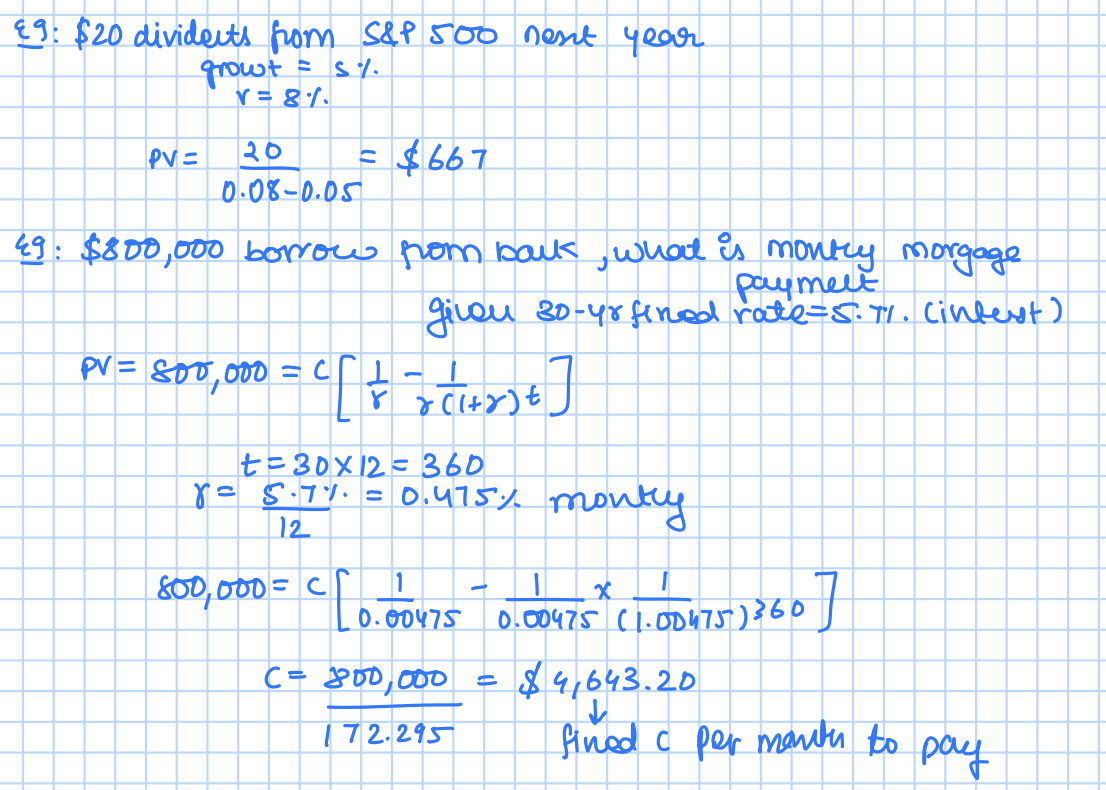 Eg: $20 dividents from S&P 500 next year
growt = 5%
r = 8%
PV = 20 / 0.08-0.05 = $667
Eg: $800,000 borrow from bank, what is montly morgage
payment
given 30-yr fixed rate=5.7%. (interst)
PV = 800,000 = C [ 1/r - 1/r(1+r)t ]
t = 30 x 12 = 360
r = 5.7% / 12 = 0.475% montly
800,000 = C [ 1/0.00475 - 1/0.00475 x 1/(1.00475)360 ]
C = 800,000 / 172.295 = $4,643.20
↓
fixed c per month to pay